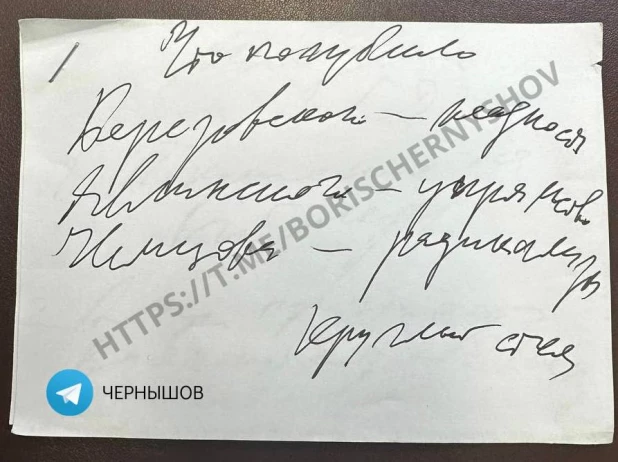 1
Что погубило
Березовского — жадность
Явлинского — упрямство
Немцова — радикализм
круглый стол
HTTPS://T.ME/BORISCHERNYSHOV
ЧЕРНЫШОВ